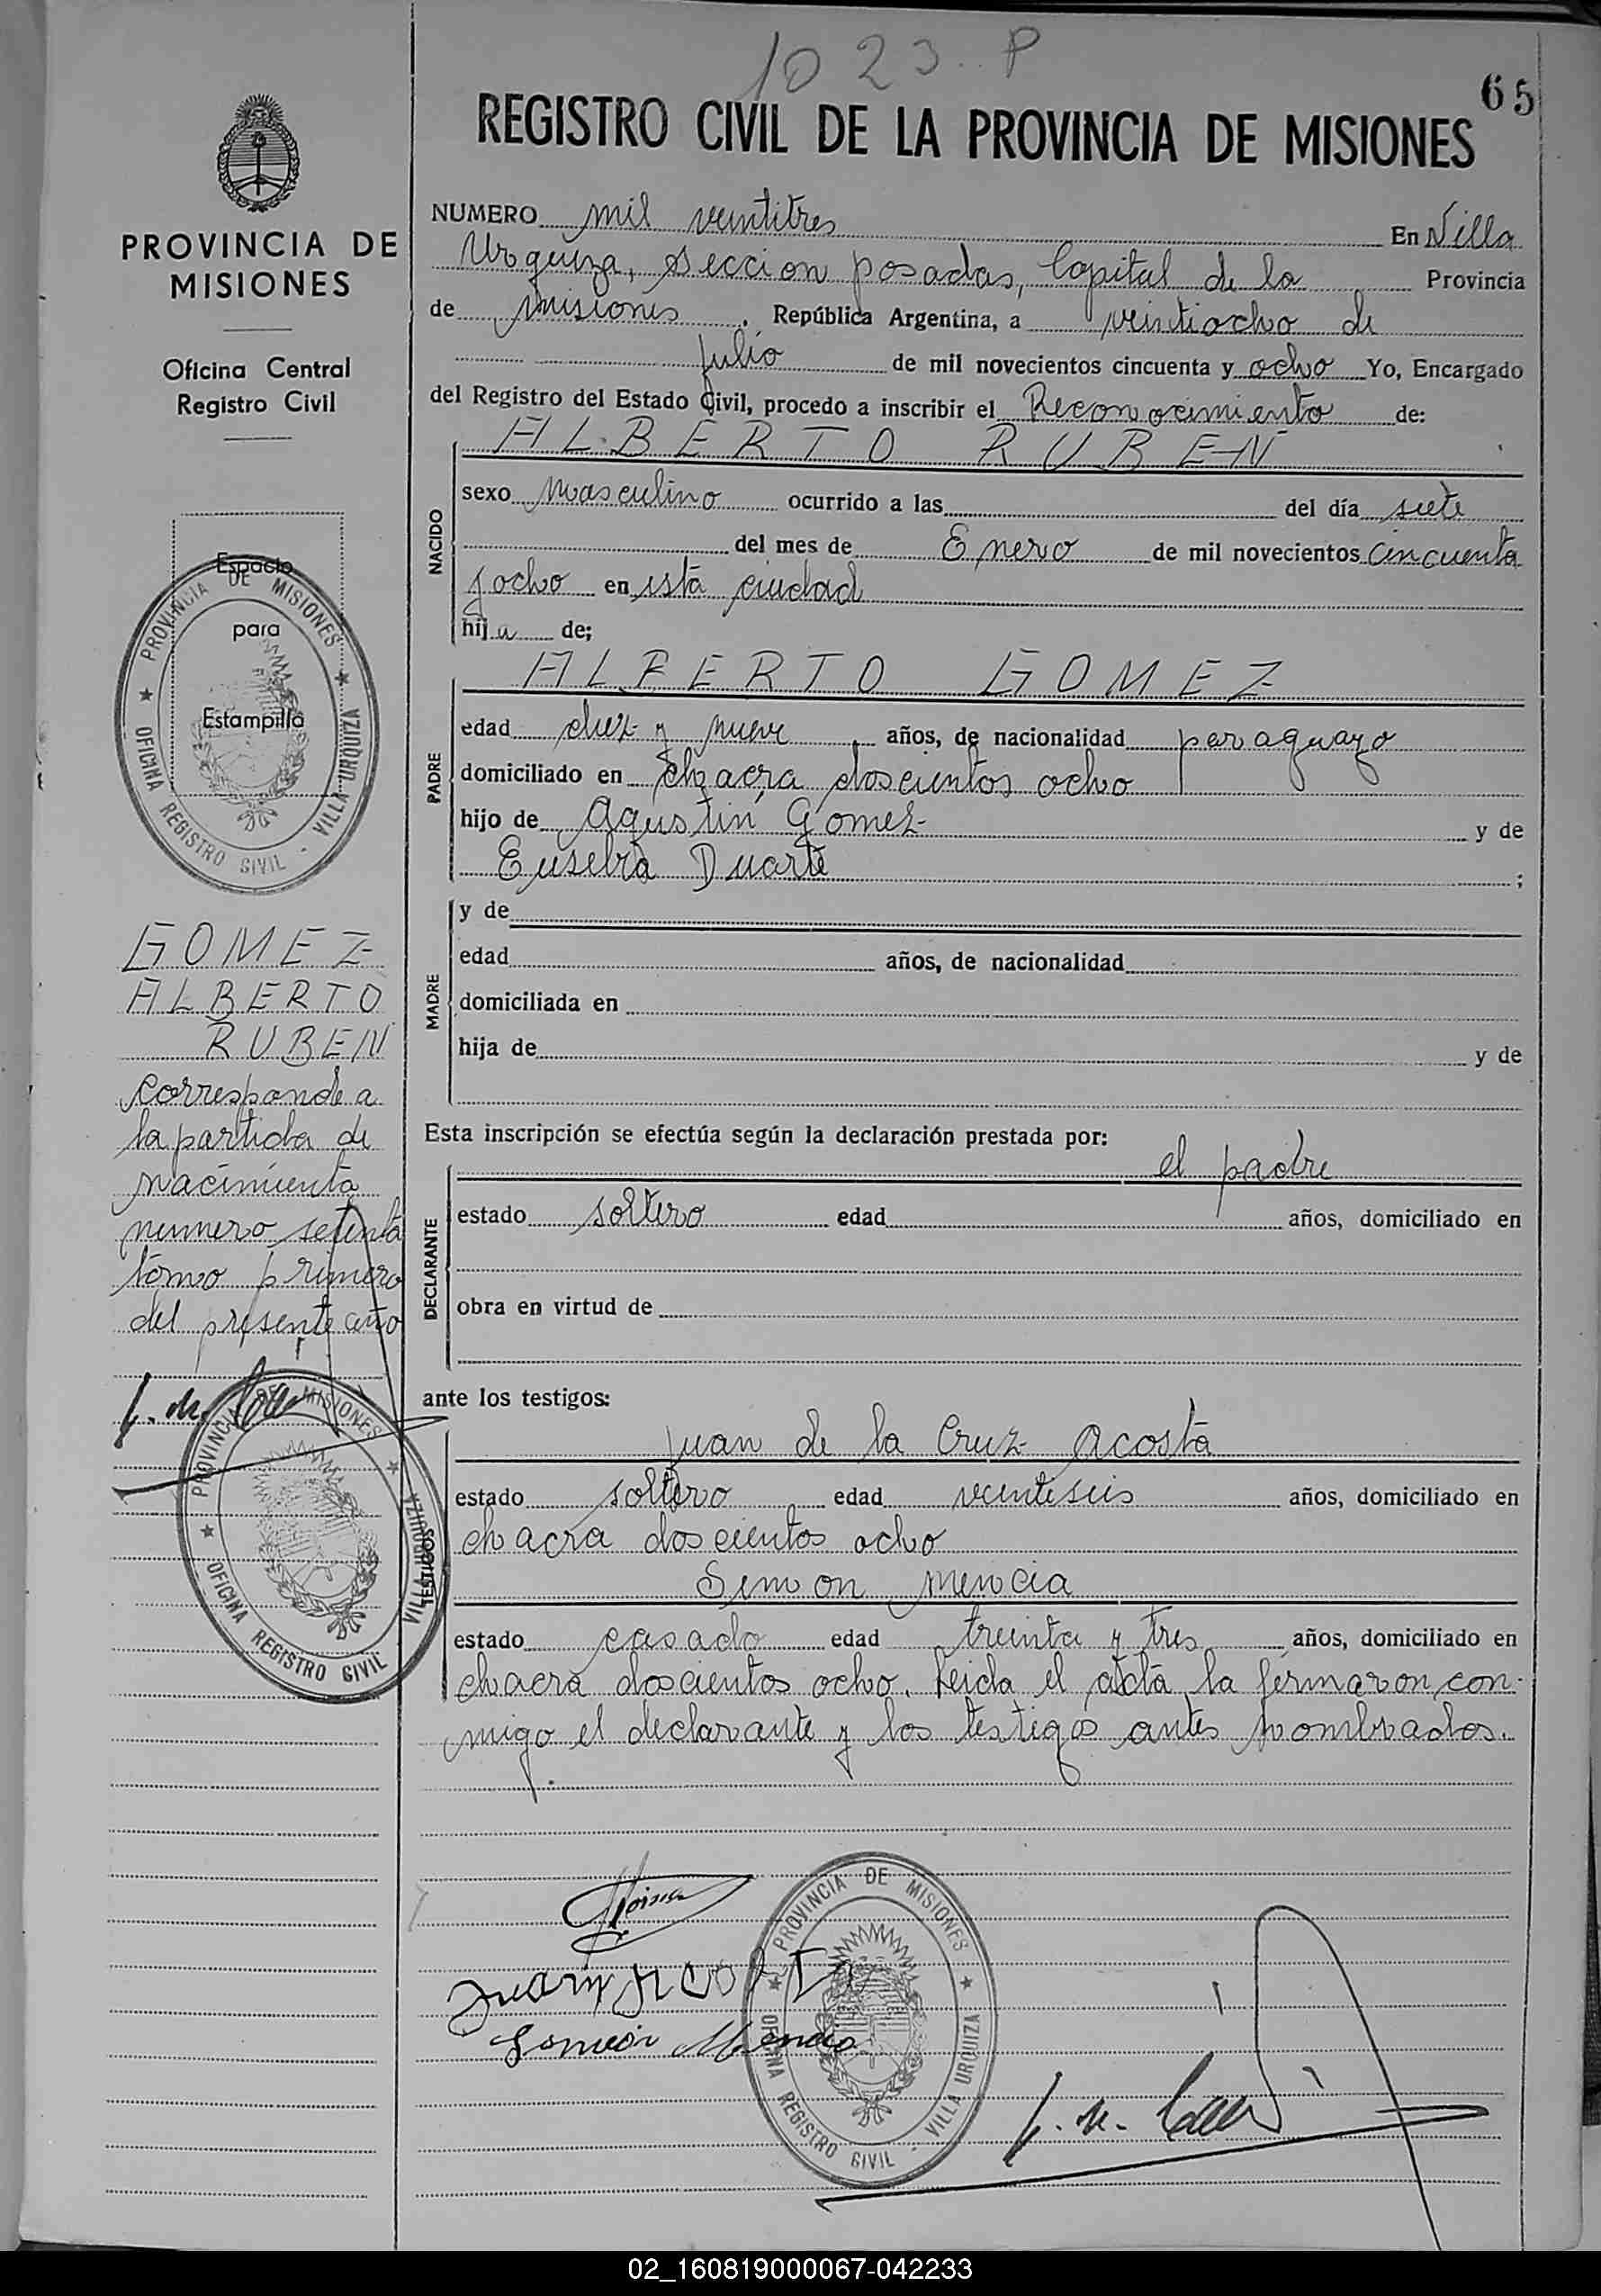 1023.. P
65
REGISTRO CIVIL DE LA PROVINCIA DE MISIONES
PROVINCIA DE
MISIONES
Oficina Central
Registro Civil
Espacio
para
Estampilla
PROVINCIA DE MISIONES
OFICINA REGISTRO CIVIL - VILLA URQUIZA
GOMEZ
ALBERTO
RUBEN
Corresponde a
la partida de
nacimiento
numero setenta
tomo primero
del presente año
PROVINCIA DE MISIONES
OFICINA REGISTRO CIVIL VILLA URQUIZA
NUMERO mil veintitres En Villa
Urquiza, seccion posadas, Capital de la Provincia
de misiones, República Argentina, a veintiocho de
julio de mil novecientos cincuenta y ocho Yo, Encargado
del Registro del Estado Civil, procedo a inscribir el Reconocimiento de:
ALBERTO RUBEN
NACIDO
sexo masculino ocurrido a las del día siete
del mes de Enero de mil novecientos cincuenta
y ocho en esta ciudad
hij de;
ALBERTO GOMEZ
PADRE
edad diez y nueve años, de nacionalidad paraguayo
domiciliado en chacra doscientos ocho
hijo de Agustin Gomez y de
Eusebia Duarte ;
MADRE
y de
edad años, de nacionalidad
domiciliada en
hija de y de
Esta inscripción se efectúa según la declaración prestada por:
el padre
DECLARANTE
estado soltero edad años, domiciliado en
obra en virtud de
ante los testigos:
Juan de la Cruz Acosta
TESTIGOS
estado soltero edad veintiseis años, domiciliado en
chacra doscientos ocho
Simon mencia
estado casado edad treinta y tres años, domiciliado en
chacra doscientos ocho. Leida el acta la firmaron con-
migo el declarante y los testigos antes nombrados.
Juan Acosta
Simeón Mencia
PROVINCIA DE MISIONES
OFICINA REGISTRO CIVIL - VILLA URQUIZA
02_160819000067-042233